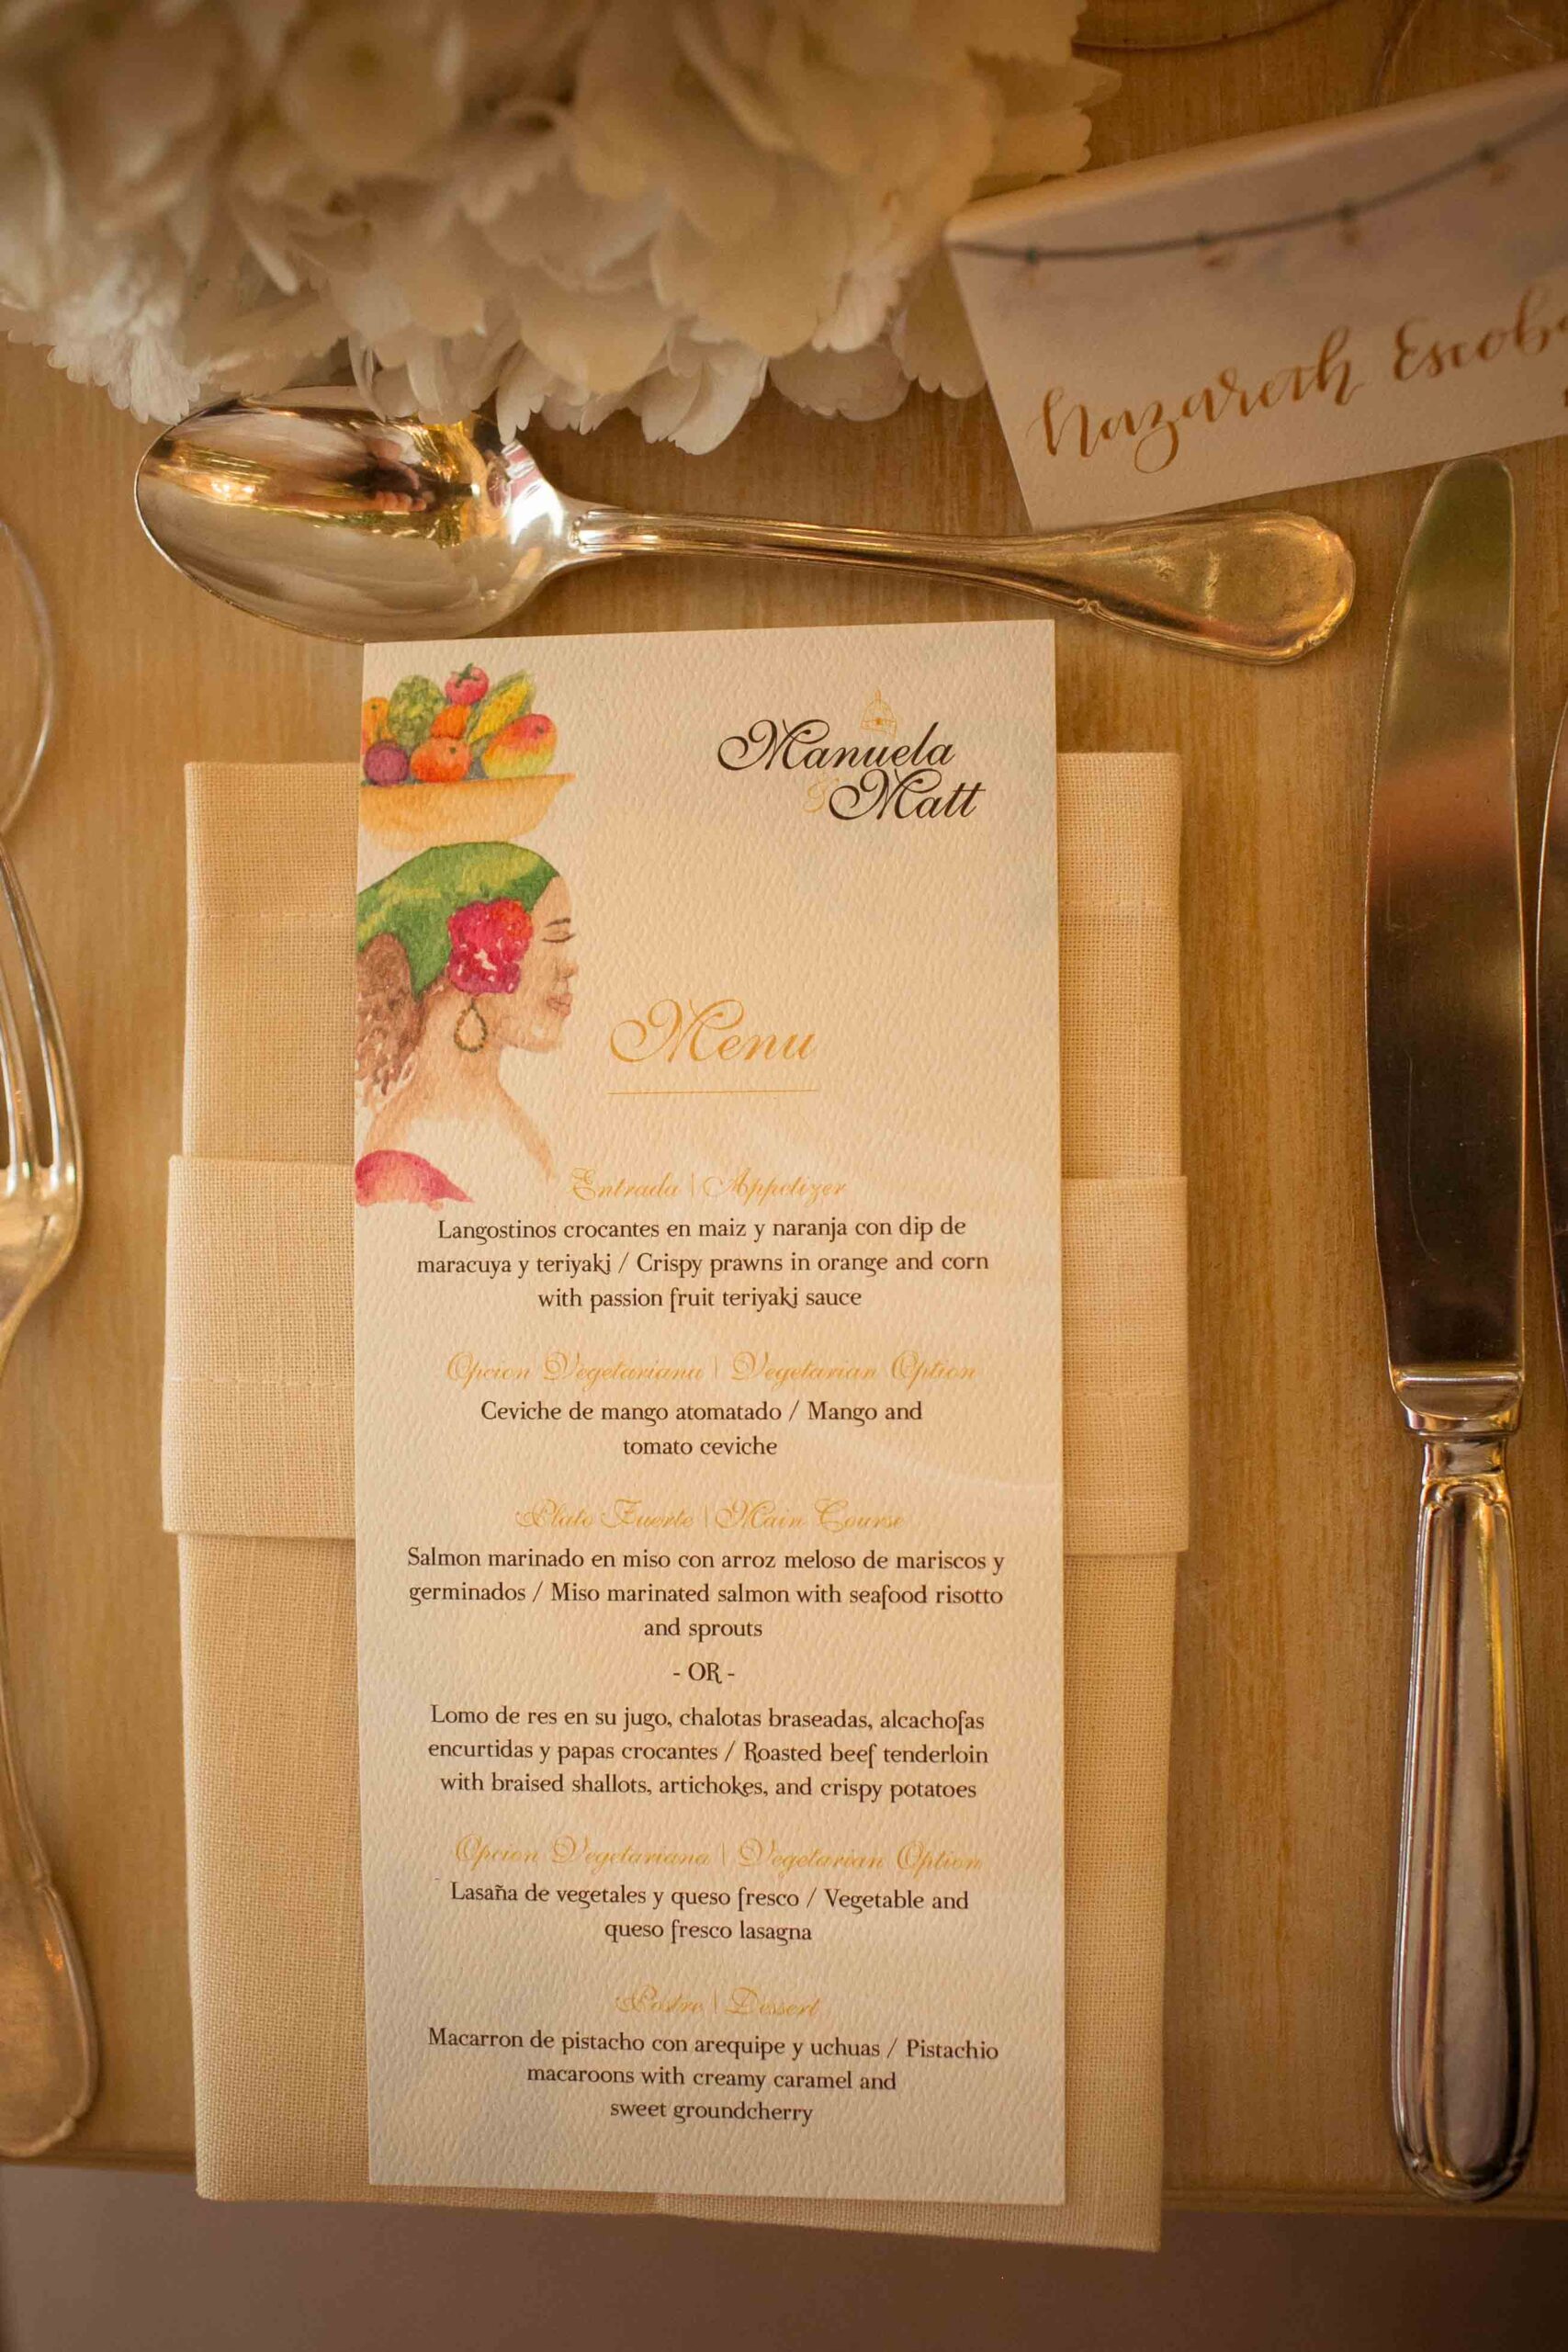 Nazareth Escob
Manuela
& Matt
Menu
Entrada | Appetizer
Langostinos crocantes en maiz y naranja con dip de
maracuya y teriyaki / Crispy prawns in orange and corn
with passion fruit teriyaki sauce
Opcion Vegetariana | Vegetarian Option
Ceviche de mango atomatado / Mango and
tomato ceviche
Plato Fuerte | Main Course
Salmon marinado en miso con arroz meloso de mariscos y
germinados / Miso marinated salmon with seafood risotto
and sprouts
- OR -
Lomo de res en su jugo, chalotas braseadas, alcachofas
encurtidas y papas crocantes / Roasted beef tenderloin
with braised shallots, artichokes, and crispy potatoes
Opcion Vegetariana | Vegetarian Option
Lasaña de vegetales y queso fresco / Vegetable and
queso fresco lasagna
Postre | Dessert
Macarron de pistacho con arequipe y uchuas / Pistachio
macaroons with creamy caramel and
sweet groundcherry